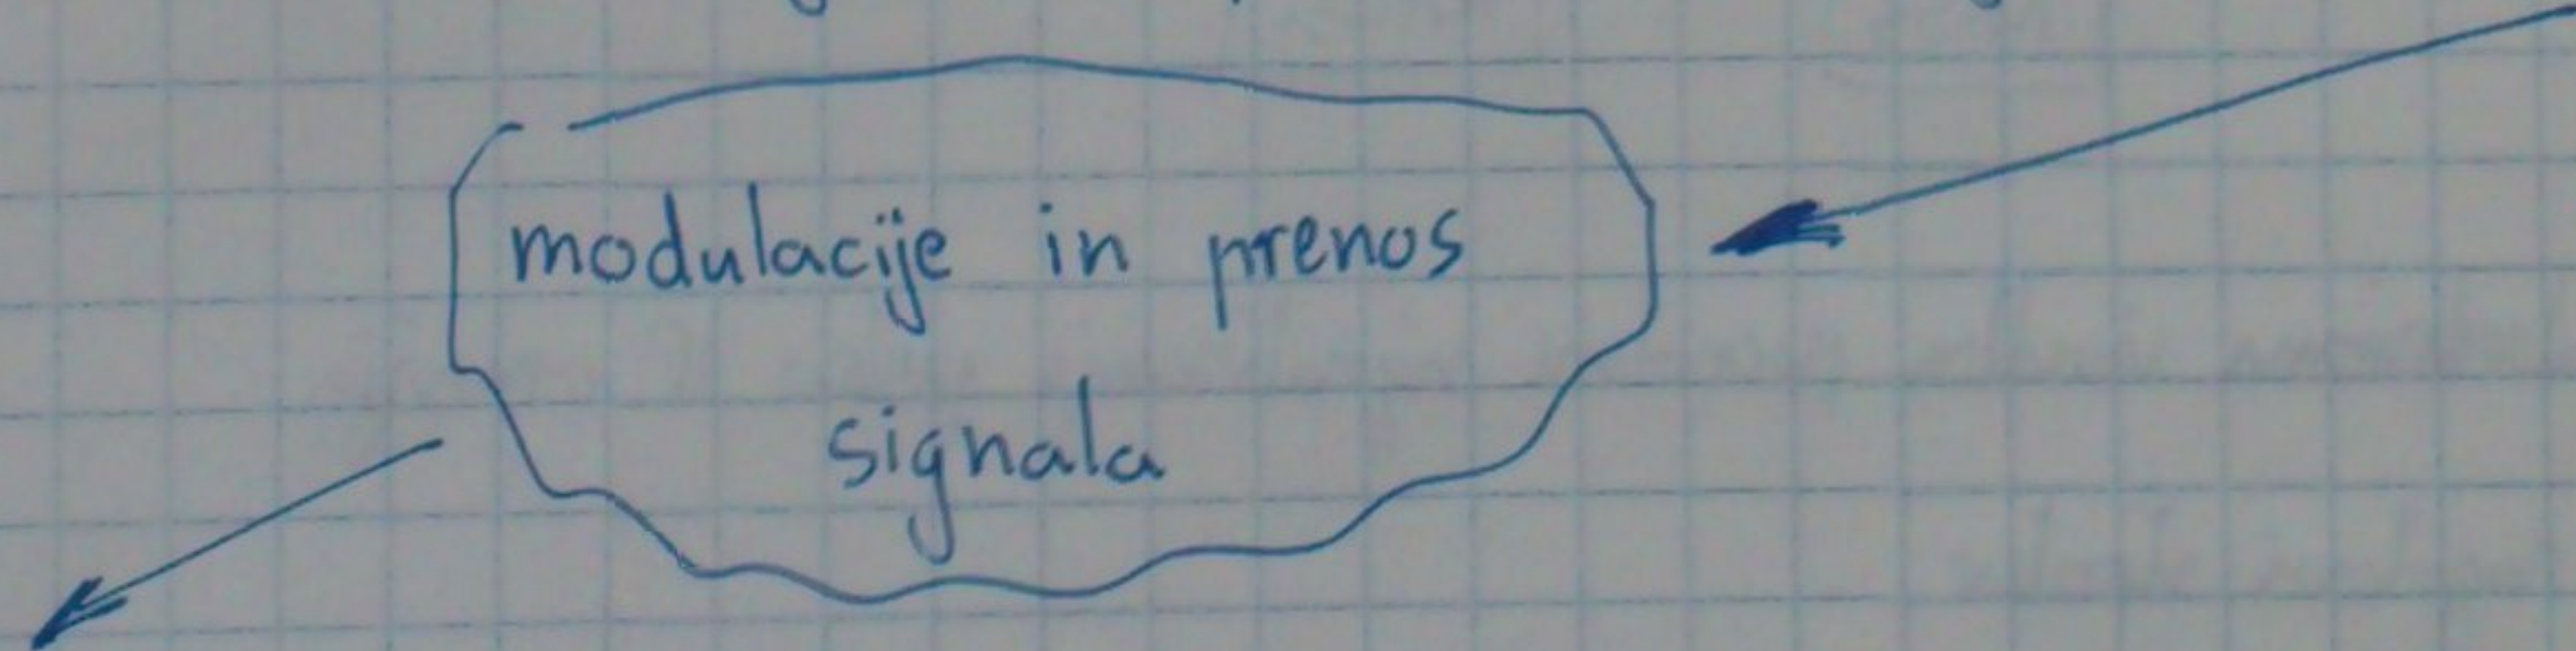 modulacije in prenos
signala